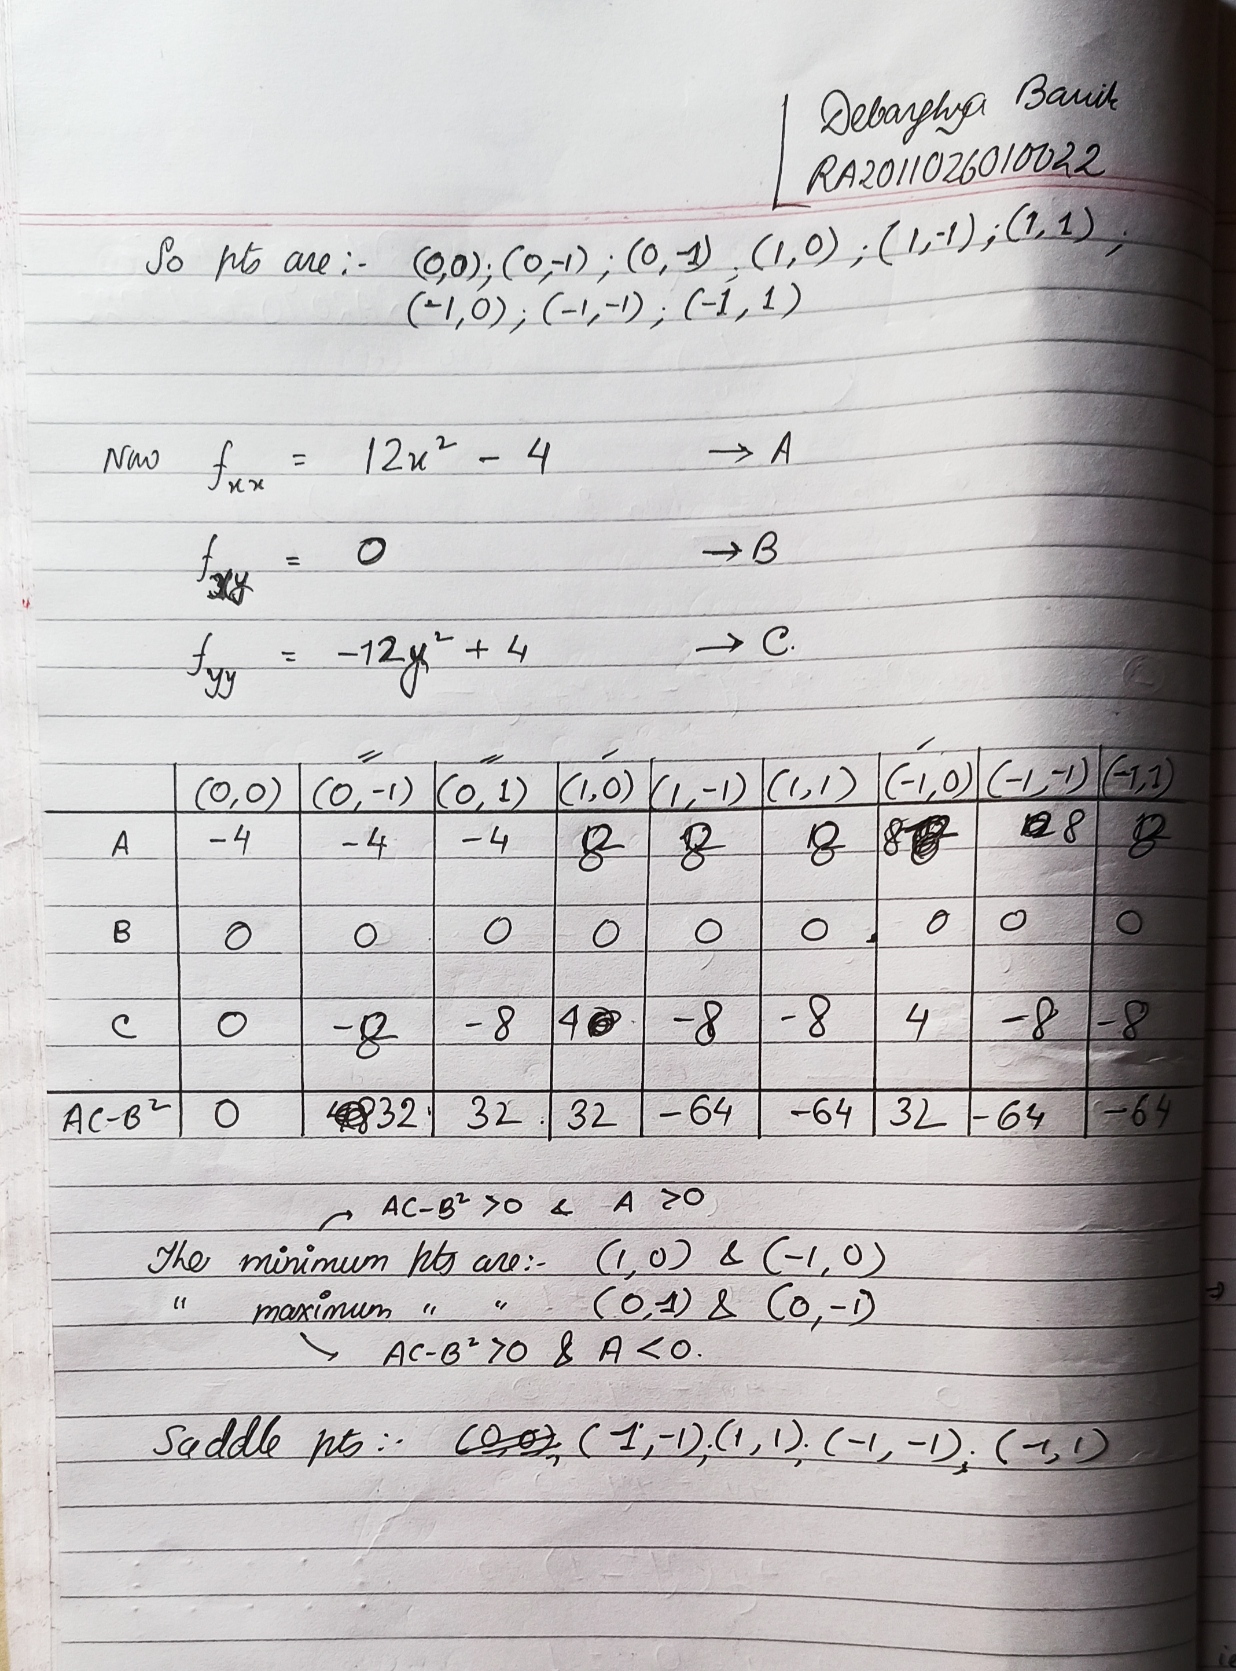 Debarghya Banik
RA2011026010022
So pts are :- (0,0); (0,-1) ; (0,-1) ; (1,0) ; (1,-1) ; (1,1) ;
(-1,0) ; (-1,-1) ; (-1,1)
Now fxx = 12x² - 4 → A
fxy = 0 → B
fyy = -12y² + 4 → C.
(0,0) (0,-1) (0,1) (1,0) (1,-1) (1,1) (-1,0) (-1,-1) (-1,1)
A -4 -4 -4 8 8 8 8 8 8
B 0 0 0 0 0 0 0 0 0
C 0 -8 -8 4 -8 -8 4 -8 -8
AC-B² 0 32 32 32 -64 -64 32 -64 -64
→ AC-B² >0 & A >0
The minimum pts are:- (1,0) & (-1,0)
" maximum " " (0,1) & (0,-1)
→ AC-B² >0 & A <0.
Saddle pts :- (0,0), (1,-1); (1,1); (-1,-1); (-1,1)